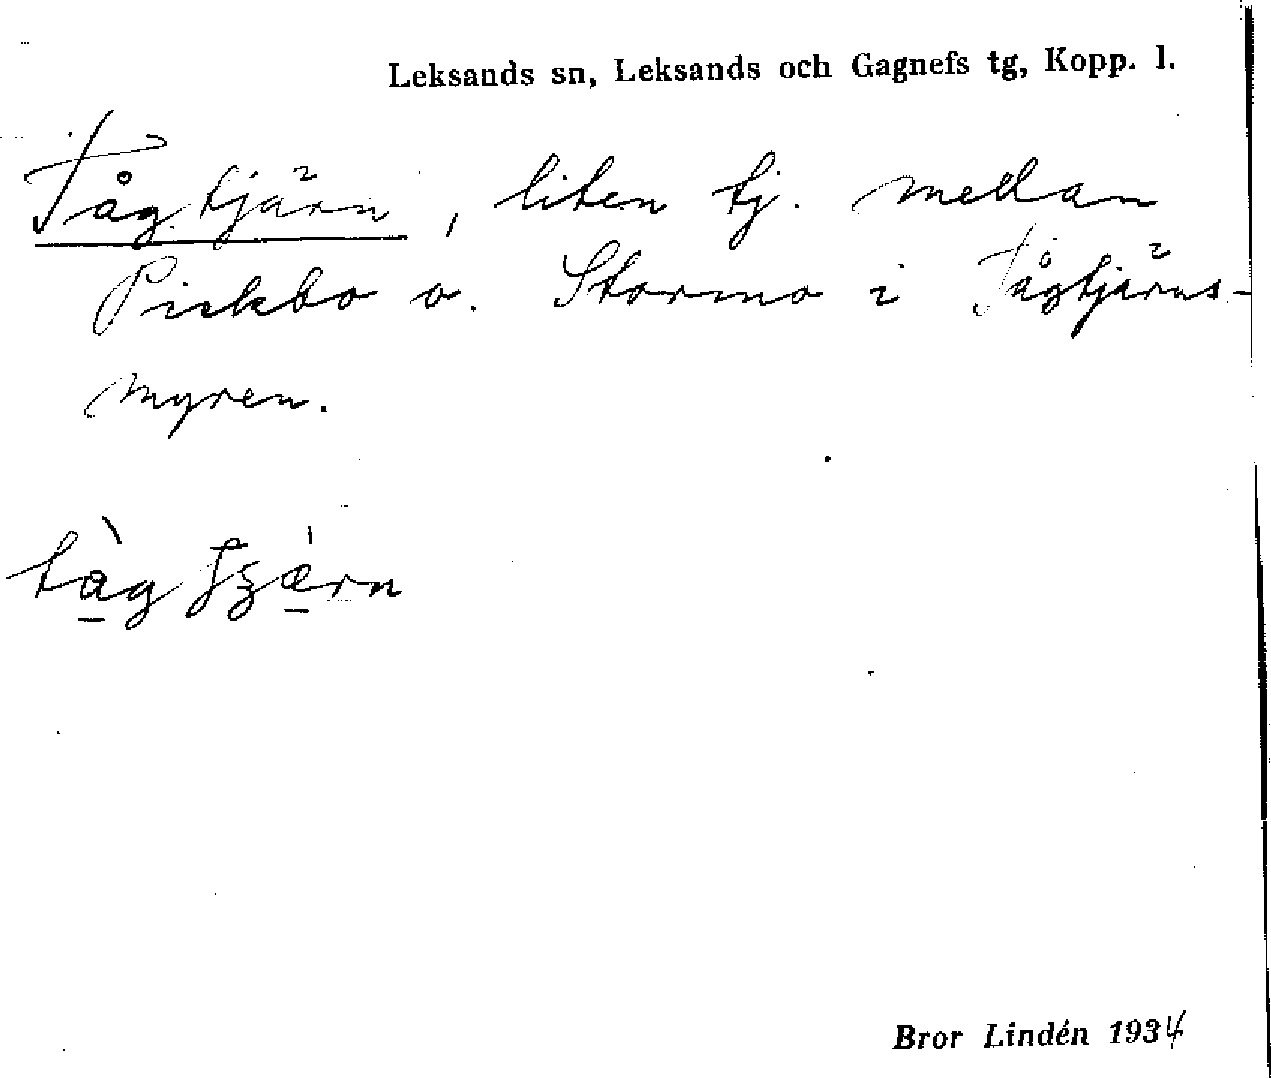 Leksands sn, Leksands och Gagnefs tg, Kopp. l.
Tågtjärn, liten tj. mellan
Piekbo o. Stormo i Tågtjärns-
myren.
Bror Lindén 1934